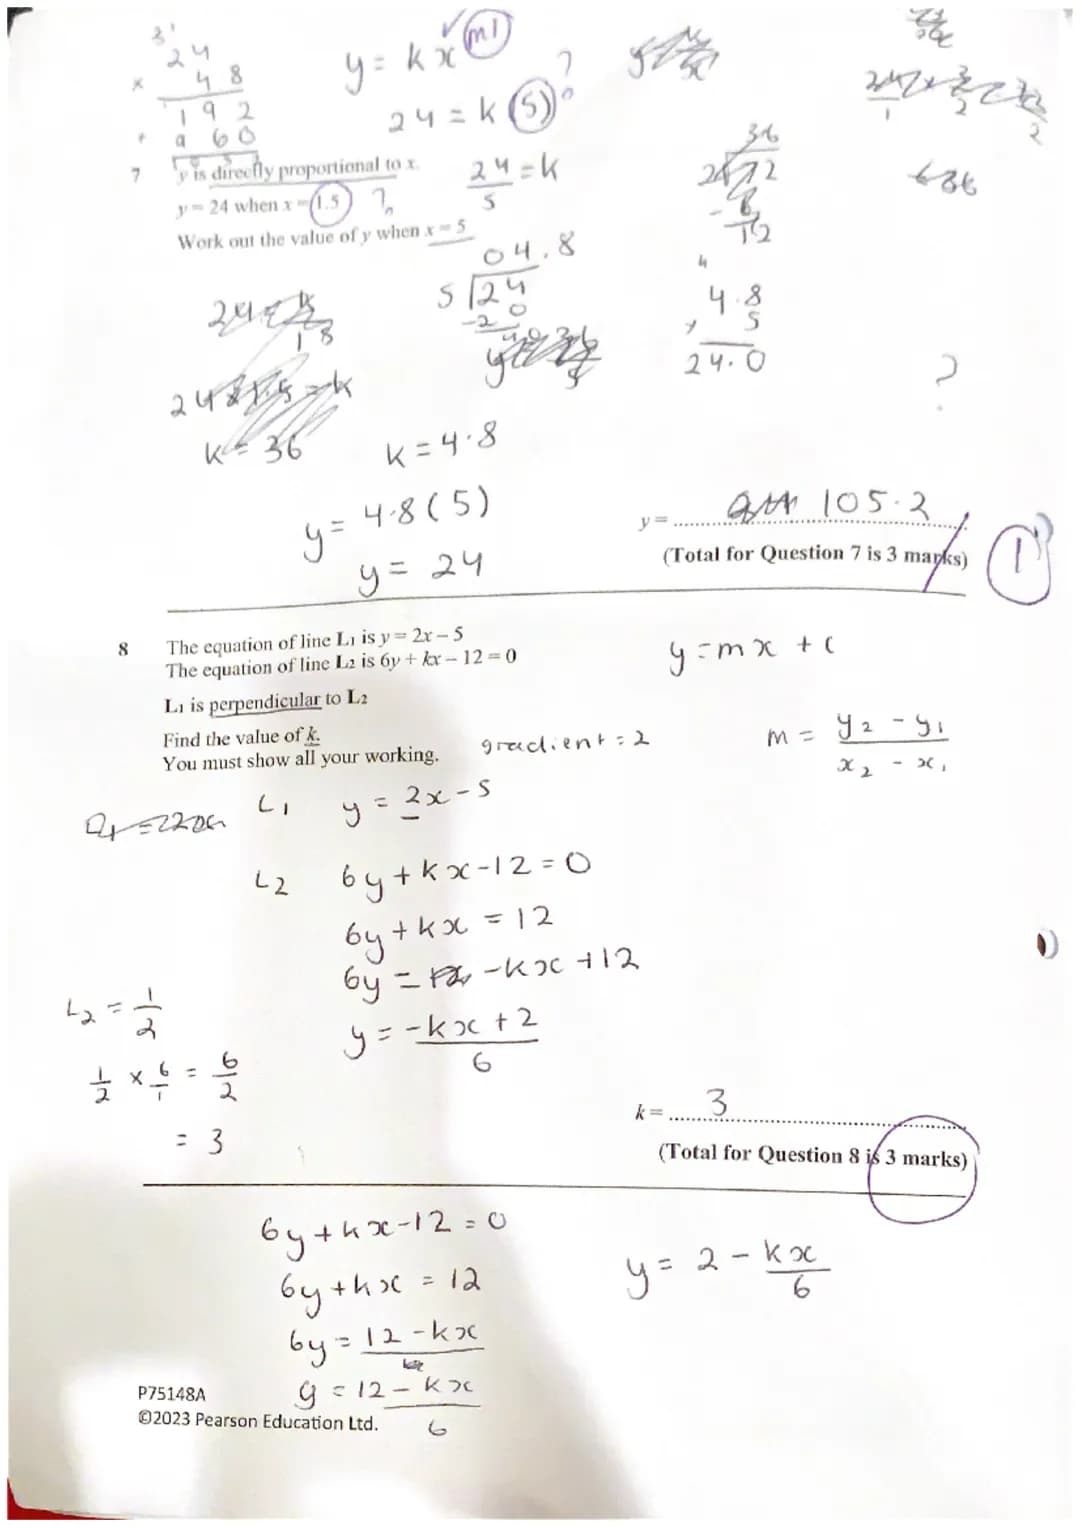 24
× 48
192
+ 960
y = kx ✓ m1
24 = k(5) ?
24 = k
5
7 y is directly proportional to x.
y = 24 when x = 1.5 ?
Work out the value of y when x = 5
04.8
5 24
-20
36
2 72
- 6
12
36
4.8
× 5
24.0
?
24 × 1.5 = k
k = 36
k = 4.8
y = 4.8(5)
y = 24
y = 105.2
(Total for Question 7 is 3 marks) 1
8 The equation of line L1 is y = 2x – 5
The equation of line L2 is 6y + kx – 12 = 0
L1 is perpendicular to L2
Find the value of k.
You must show all your working.
y = mx + c
gradient = 2
m = y2 - y1
x2 - x1
L1 y = 2x - 5
L2 6y + kx - 12 = 0
6y + kx = 12
6y = -kx + 12
y = -kx + 2
6
L2 = 1
2
1/2 × 6/1 = 6/2
= 3
k = 3
(Total for Question 8 is 3 marks)
6y + kx - 12 = 0
6y + kx = 12
6y = 12 - kx
y = 12 - kx
6
y = 2 - kx
6
P75148A
©2023 Pearson Education Ltd.